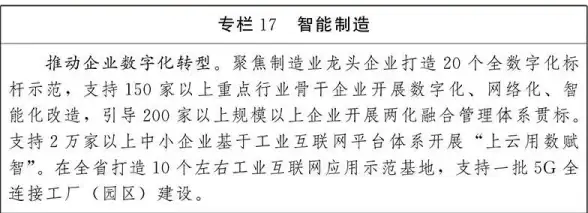 专栏 17 智能制造
推动企业数字化转型。聚焦制造业龙头企业打造 20 个全数字化标
杆示范，支持 150 家以上重点行业骨干企业开展数字化、网络化、智
能化改造，引导 200 家以上规模以上企业开展两化融合管理体系贯标。
支持 2 万家以上中小企业基于工业互联网平台体系开展“上云用数赋
智”。在全省打造 10 个左右工业互联网应用示范基地，支持一批 5G 全
连接工厂（园区）建设。